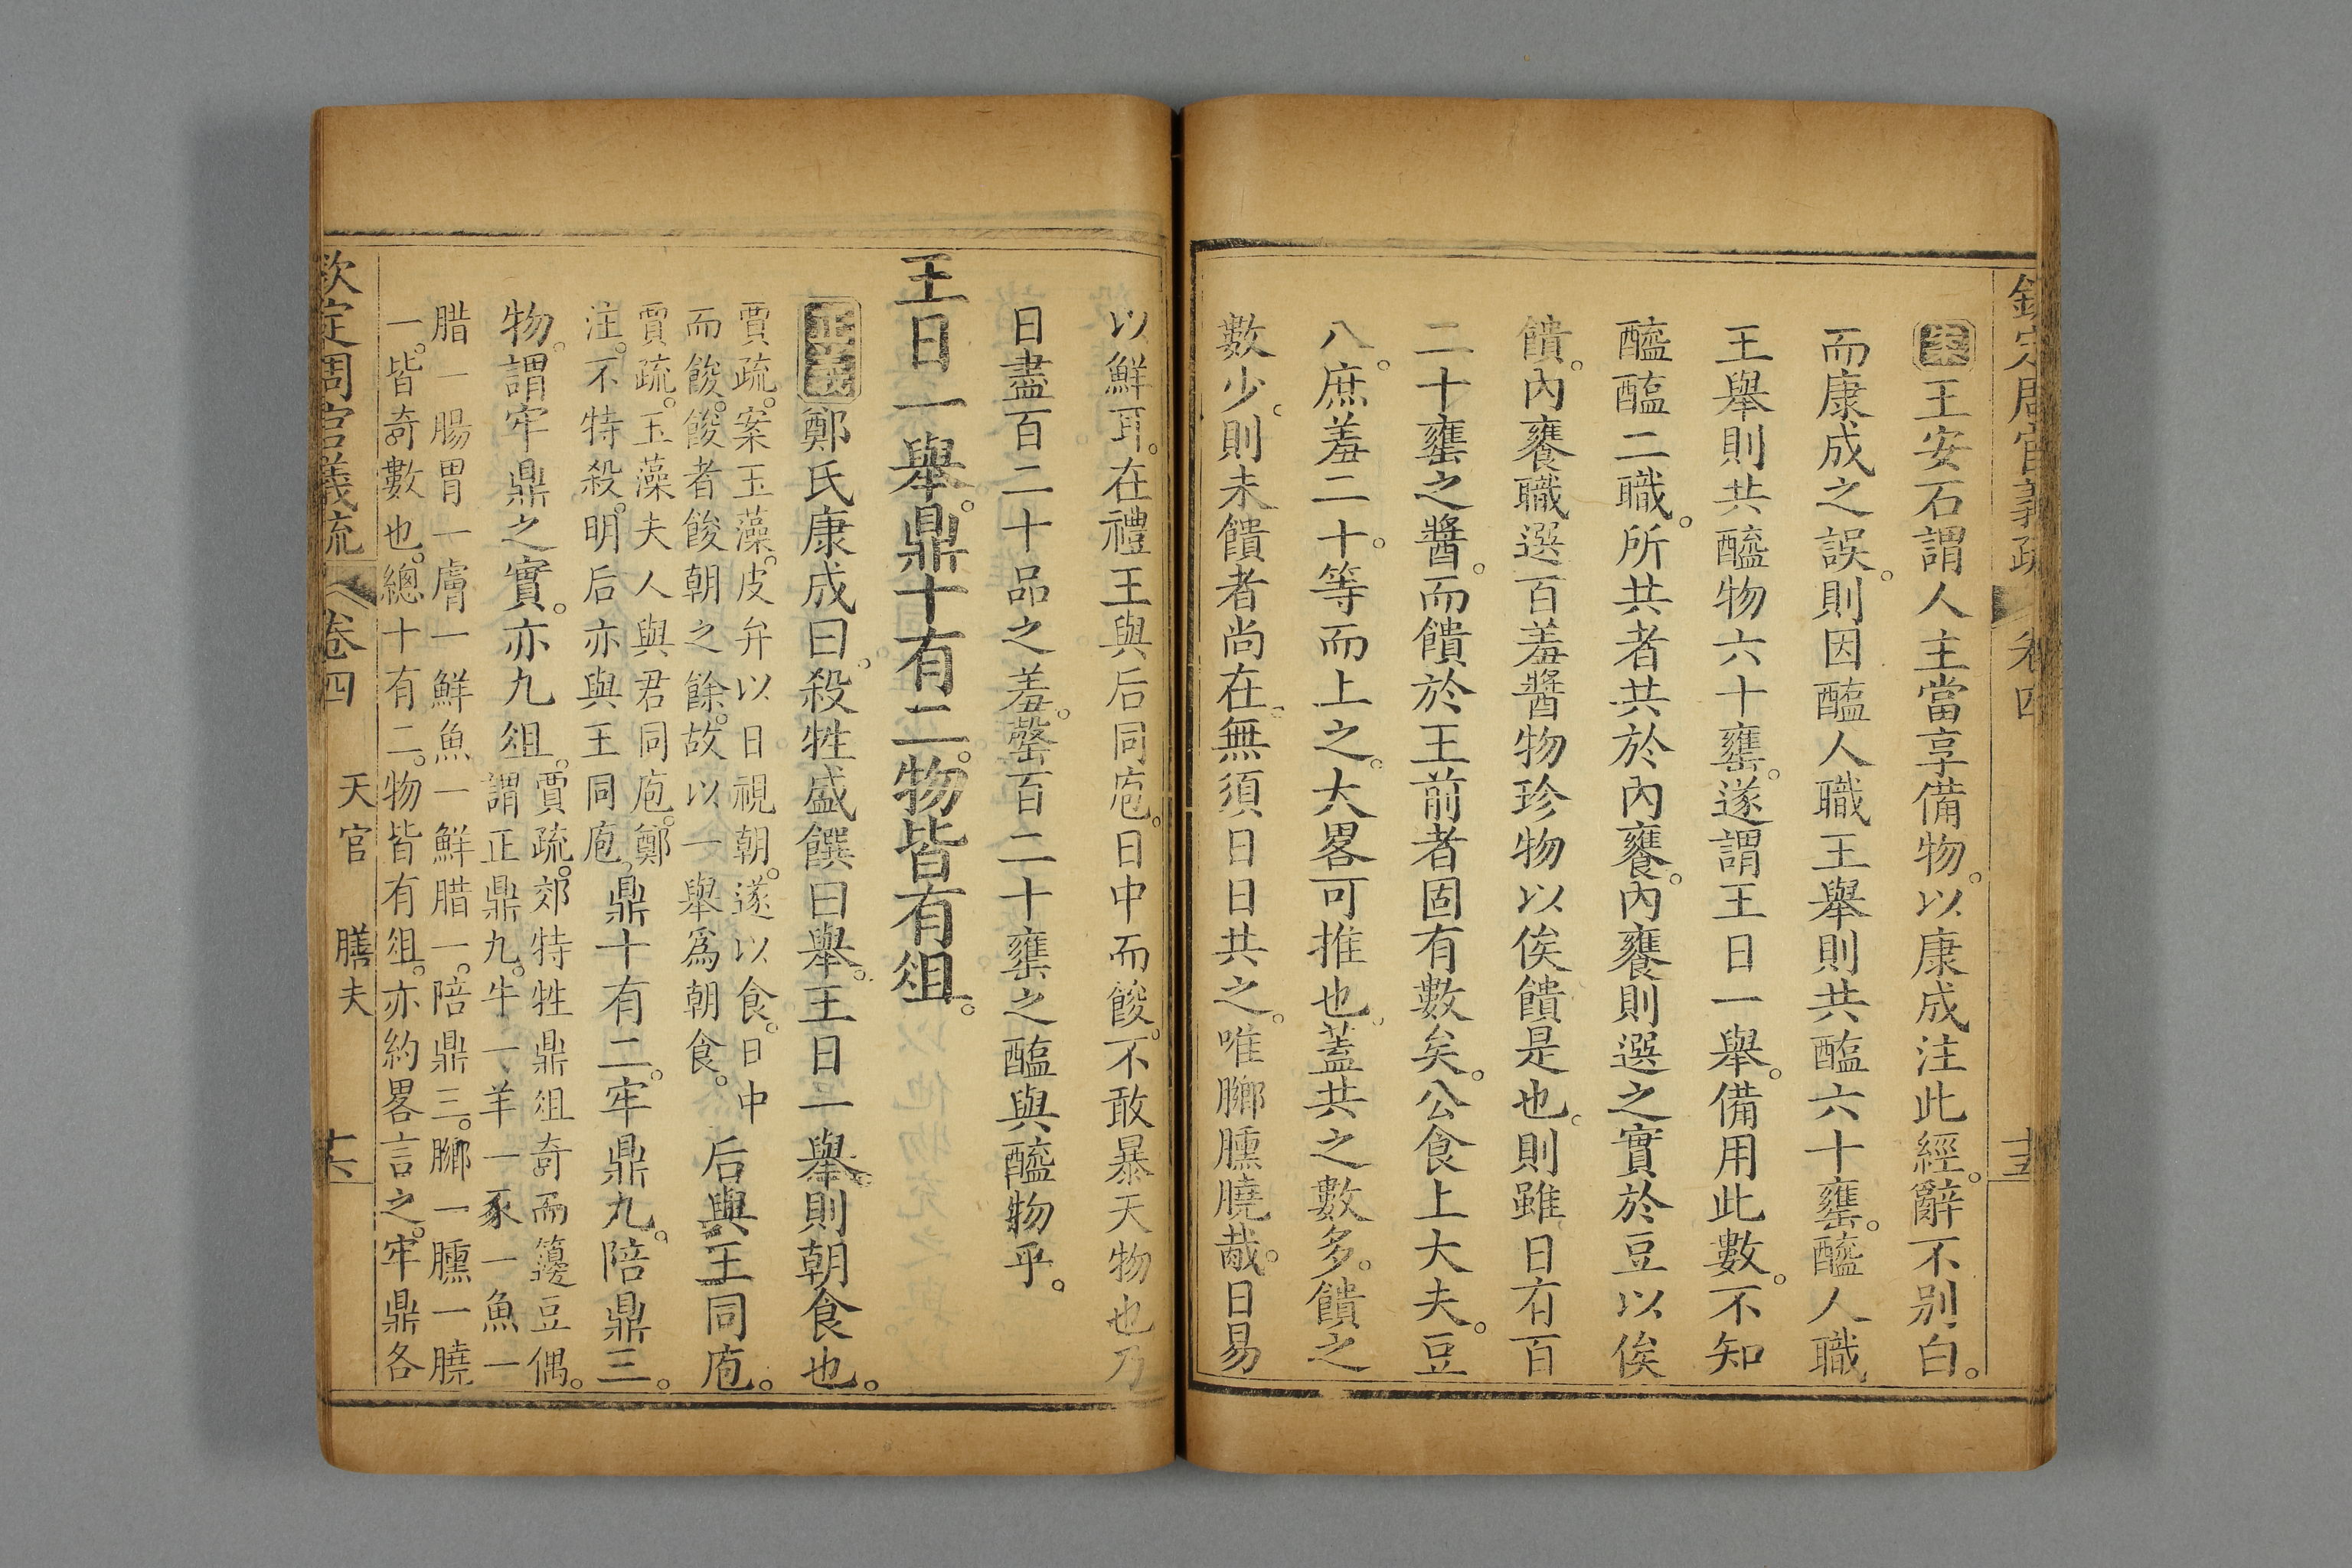 欽定周官義疏 卷四 十五
案王安石謂人主當享備物以康成注此經辭不别白
而康成之誤則因醢人職王舉則共醢六十罋醯人職
王舉則共醯物六十罋遂謂王日一舉備用此數不知
醯醢二職所共者共於內饔內饔則選之實於豆以俟
饋內饔職選百羞醬物珍物以俟饋是也則雖日有百
二十罋之醬而饋於王前者固有數矣公食上大夫豆
八庶羞二十等而上之大畧可推也蓋共之數多饋之
數少則未饋者尚在無須日日共之唯膷臐膮胾日易
以鮮耳在禮王與后同庖日中而餕不敢暴天物也乃
日盡百二十品之羞罄百二十罋之醢與醯物乎
王日一舉鼎十有二物皆有俎
正義鄭氏康成曰殺牲盛饌曰舉王日一舉則朝食也
賈疏案玉藻皮弁以日視朝遂以食日中
而餕餕者餕朝之餘故以一舉爲朝食后與王同庖
賈疏玉藻夫人與君同庖鄭
注不特殺明后亦與王同庖鼎十有二牢鼎九陪鼎三
物謂牢鼎之實亦九俎賈疏郊特牲鼎俎奇而籩豆偶
謂正鼎九牛一羊一豕一魚一
腊一腸胃一膚一鮮魚一鮮腊一陪鼎三膷一臐一膮
一皆奇數也總十有二物皆有俎亦約畧言之牢鼎各
欽定周官義疏 卷四 天官 膳夫 十六